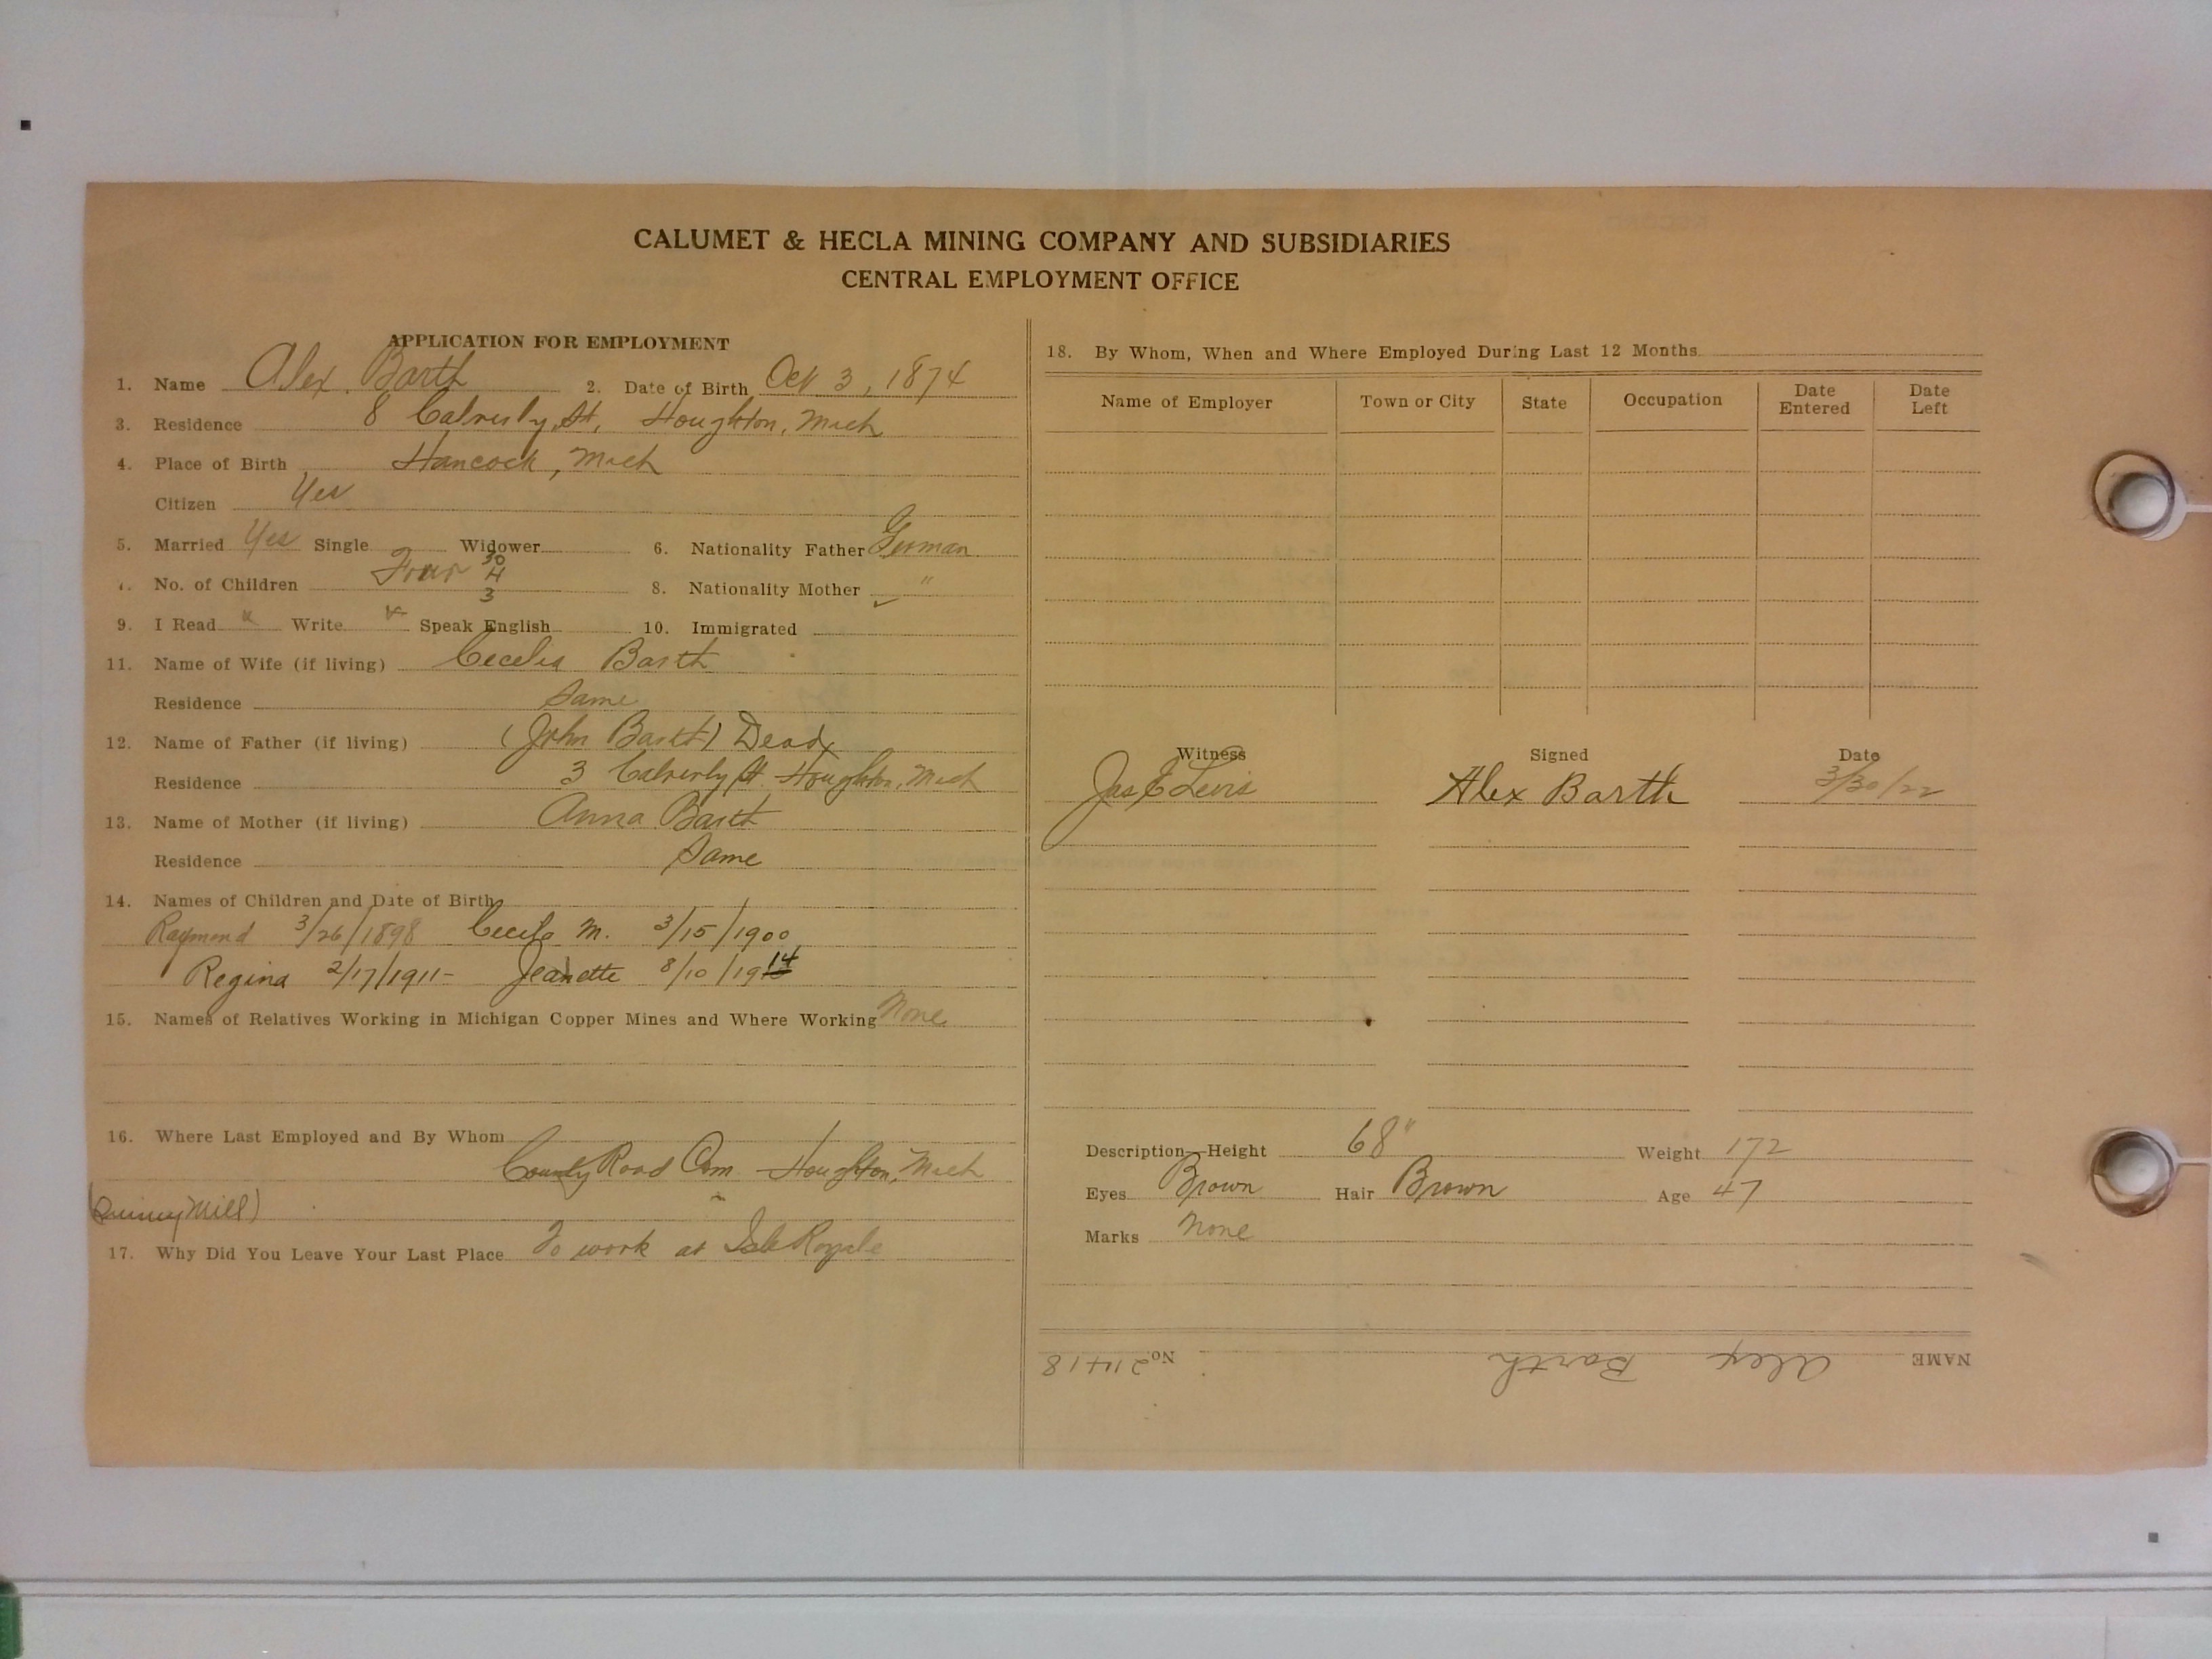 CALUMET & HECLA MINING COMPANY AND SUBSIDIARIES
CENTRAL EMPLOYMENT OFFICE
APPLICATION FOR EMPLOYMENT
1. Name Alex. Barth 2. Date of Birth Oct 3, 1874
3. Residence 8 Calverly St, Houghton, Mich
4. Place of Birth Hancock, Mich
Citizen Yes
5. Married Yes Single Widower 6. Nationality Father German
7. No. of Children Four 30 4 3 8. Nationality Mother "
9. I Read Write Speak English 10. Immigrated
11. Name of Wife (if living) Cecelia Barth
Residence Same
12. Name of Father (if living) (John Barth) Dead
Residence 3 Calverly St. Houghton, Mich
13. Name of Mother (if living) Anna Barth
Residence Same
14. Names of Children and Date of Birth
Raymond 3/26/1898 Cecila M. 3/15/1900
Regina 2/17/1911- Jeanette 8/10/1914
15. Names of Relatives Working in Michigan Copper Mines and Where Working None
16. Where Last Employed and By Whom
County Road Com. Houghton, Mich
(Quincy Mill) "
17. Why Did You Leave Your Last Place To work at Isle Royale
18. By Whom, When and Where Employed During Last 12 Months
Name of Employer Town or City State Occupation Date Entered Date Left
Witness Signed Date
Jas E Levis Alex Barth 3/30/22
Description—Height 68" Weight 172
Eyes Brown Hair Brown Age 47
Marks None
NAME Alex Barth No. 21418